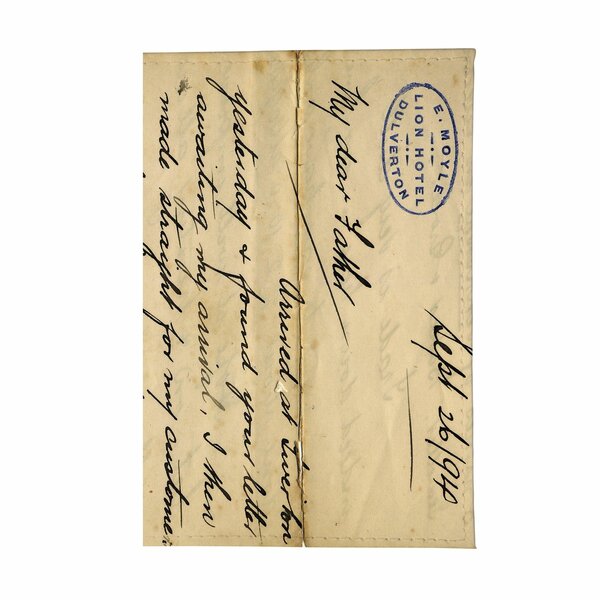 E. MOYLE
LION HOTEL
DULVERTON
Sept 26/94
My dear Father
Arrived at Tiverton
yesterday & found your letter
awaiting my arrival, I then
made straight for my customer